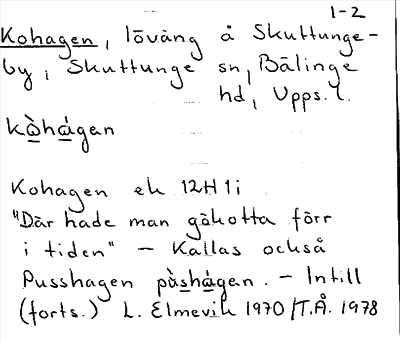 1-2
Kohagen, lövång å Skuttunge-
by, Skuttunge sn, Bälinge
hd, Upps. l.
kὼhágen
Kohagen ek 12H1i
"Där hade man gökotta förr
i tiden" - Kallas också
Pusshagen pùshágen. - Intill
(forts.) L. Elmevik 1970/T.Å. 1978